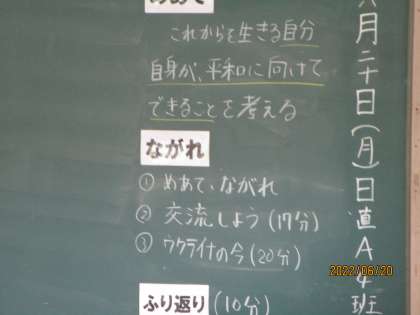 六月二十日(月)日直A4班
めあて
これからを生きる自分
自身が、平和に向けて
できることを考える
ながれ
① めあて、ながれ
② 交流しよう(17分)
③ ウクライナの今(20分)
ふり返り (10分)
2022/06/20